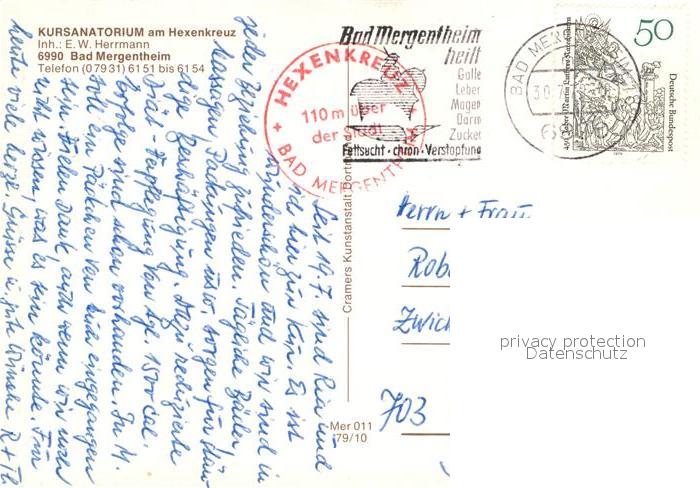 KURSANATORIUM am Hexenkreuz
Inh.: E. W. Herrmann
6990 Bad Mergentheim
Telefon (07931) 6151 bis 6154
Bad Mergentheim
heilt
Galle
Leber
Magen
Darm
Zucker
Fettsucht · chron · Verstopfung
HEXENKREUZ
110 m über
der Stadt
+ BAD MERGENTHEIM +
BAD MERGENTHEIM
50
Deutsche Bundespost
Seit 19.7. sind Ria und
ich hier zur Kur. Es ist
wunderschön und wir sind in
jeder Beziehung zufrieden. Tägliche Bäder
Massagen, usw. sorgen für stän-
dige Beschäftigung. Dazu reduzierte
Diät-Verpflegung von tgl. 1500 Cal.
Erfolge sind schon vorhanden. In M.
soll ein Päckchen von Euch eingegangen
sein. Vielen Dank auch wenn wir noch
nicht wissen, was es sein könnte. Für
heute viele herzl. Grüsse u. gute Wünsche R + Th
Herrn + Frau
Rob
Zwick
703
Cramers Kunstanstalt Dortmund
Mer 011
79/10
privacy protection
Datenschutz